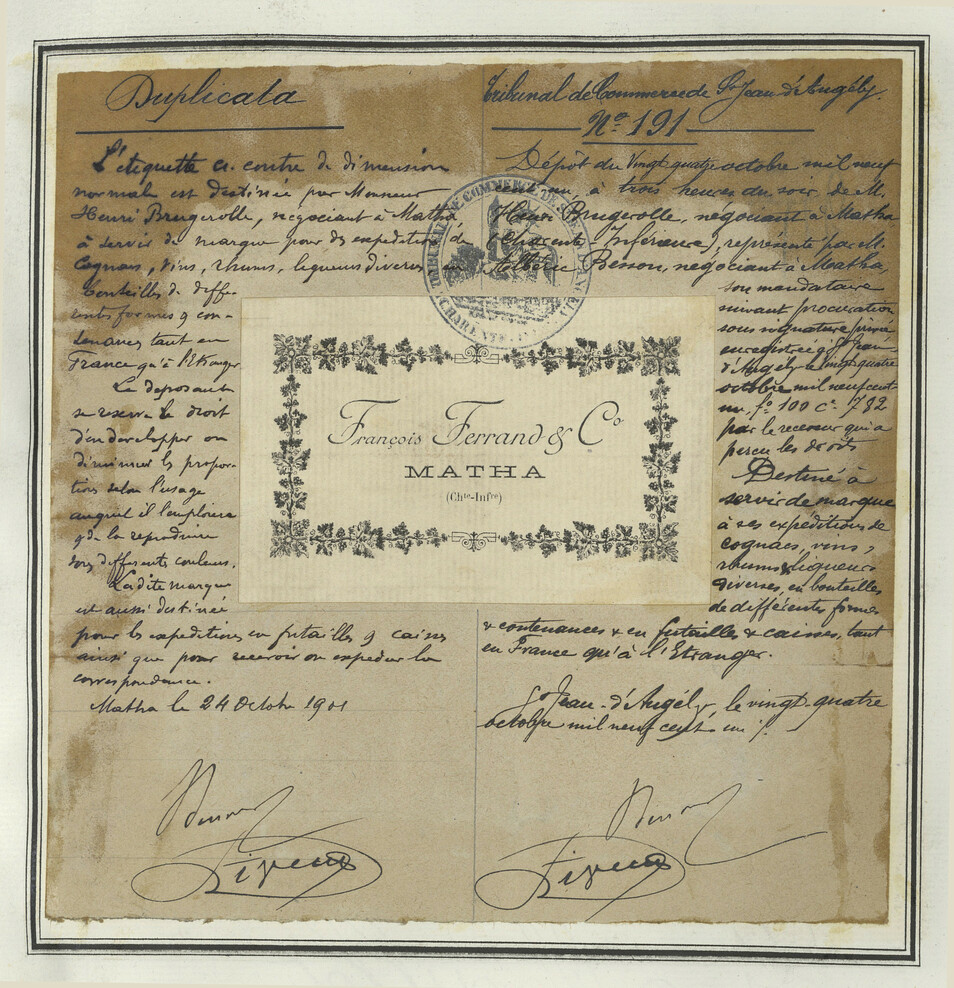 Duplicata
L'étiquette ci-contre de dimension
normale est destinée par Monsieur
Henri Brugerolle, négociant à Matha
à servir de marque pour des expéditions de
Cognacs, vins, rhums, liqueurs diverses en
bouteilles de diffé-
rentes formes & con-
tenances tant en
France qu'à l'Etranger
Le déposant
se réserve le droit
d'en développer ou
diminuer les propor-
tions selon l'usage
auquel il l'emploiera
& de la reproduire
en différentes couleurs.
La dite marque
est aussi destinée
pour les expéditions en futailles & caisses
ainsi que pour recevoir ou expédier la
correspondance.
Matha le 24 Octobre 1901
Tribunal de Commerce de St Jean d'Angély.
No 191
Dépôt du Vingt quatre octobre mil neuf
cent un, à trois heures du soir, de M.
Henri Brugerolle, négociant à Matha
(Charente-Inférieure), représenté par M.
Albéric Besson, négociant à Matha,
son mandataire
suivant procuration
sous signature privée
enregistrée à St Jean
d'Angély le vingt quatre
octobre mil neuf cent
un, fo 100 ce 782
par le receveur qui a
perçu les droits
Destiné à
servir de marque
à ses expéditions de
cognacs, vins,
rhums & liqueurs
diverses, en bouteilles
de différentes formes
& contenances & en futailles & caisses, tant
en France qu'à l'Etranger.
St Jean-d'Angély, le vingt-quatre
octobre mil neuf cent un
François Ferrand & Co
MATHA
(Chte-Infre)
TRIBUNAL DE COMMERCE DE ST JEAN D'ANGELY